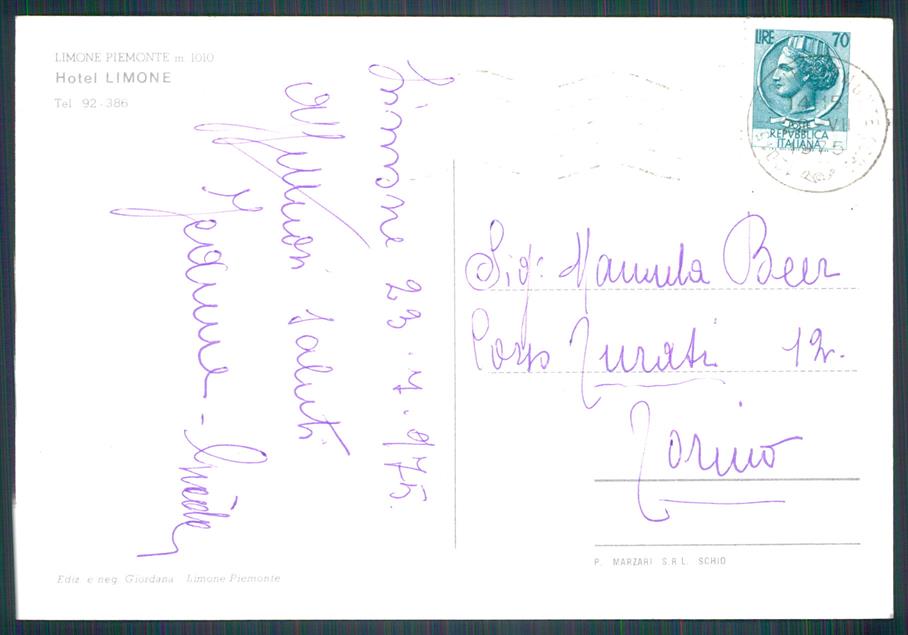 LIMONE PIEMONTE m 1010
Hotel LIMONE
Tel 92-386
Limone 23.7.975.
Affettuosi saluti
LIRE 70
POSTE
REPVBBLICA
ITALIANA
Sig: Manuela Beer
Corso Turati 12.
Torino
P. MARZARI S.R.L. SCHIO
Ediz. e neg. Giordana Limone Piemonte